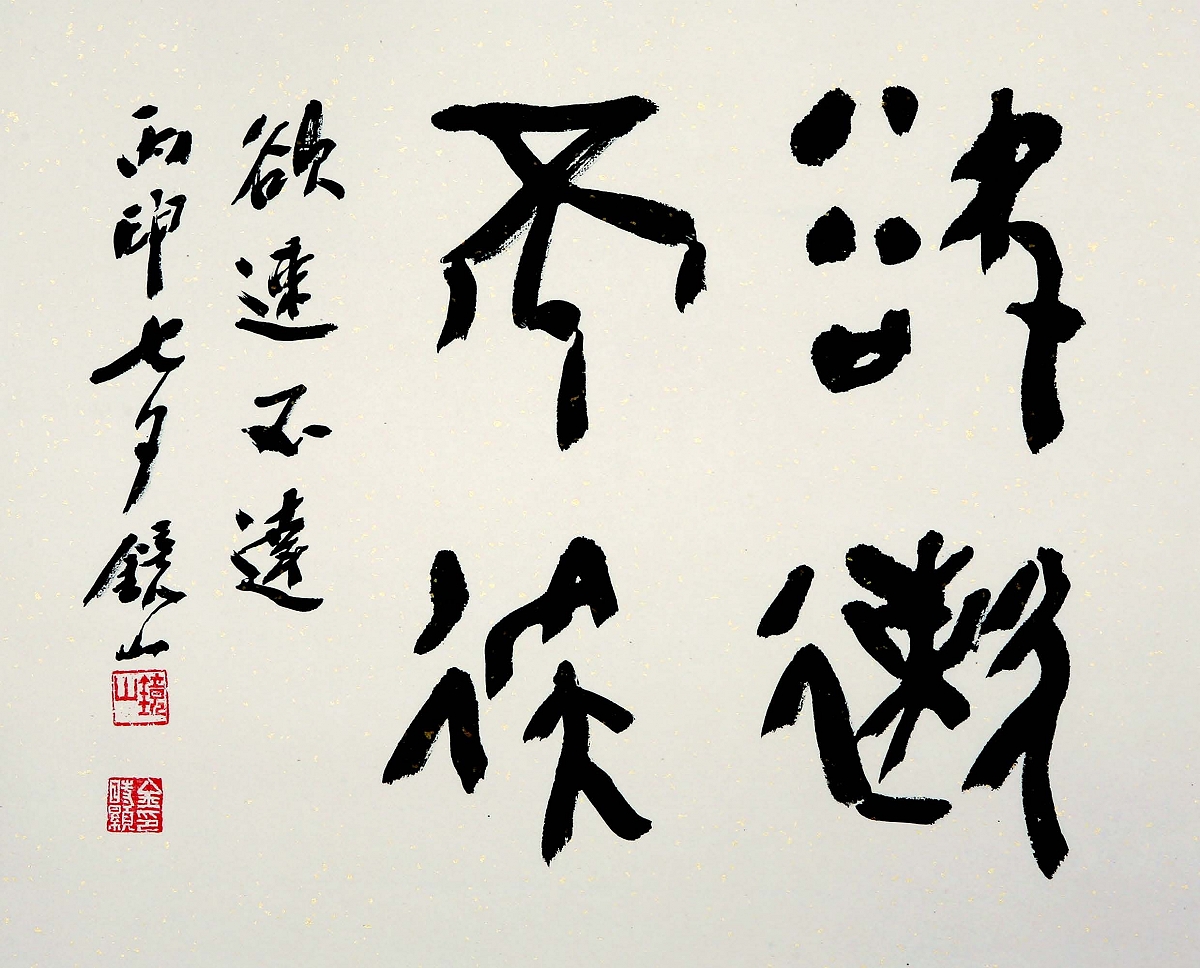 欲速
不達
欲速不達
丙申七夕鏡山
鏡山
金印
時顯